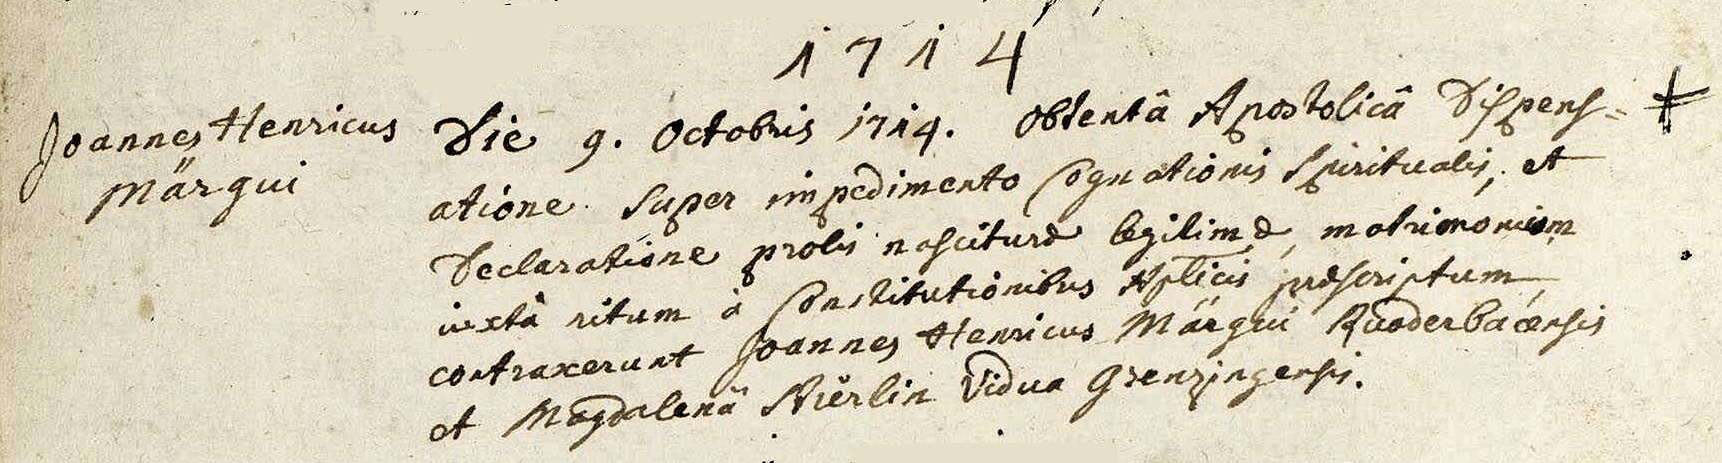 1714
Joannes Henricus
Märgui
Die 9. Octobris 1714. Obtentâ Apostolicâ Dispens=
atione super impedimento Cognationis Spiritualis, et
Declaratione prolis nasciturae legitimae, matrimonium
iuxtà ritum à Constitutionibus Aplicis praescriptum
contraxerunt Joannes Henricus Märgui Ruoderbacensis
et Magdalena Vidua Grenzingensis.